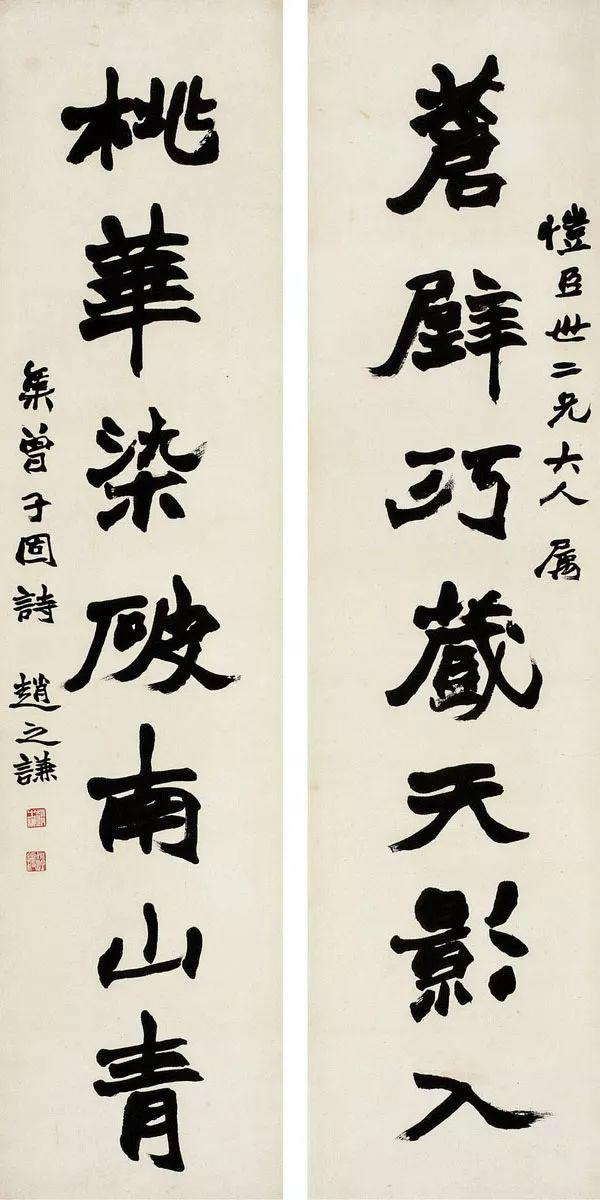 愷臣世二兄大人 属
蒼壁巧藏天影入
桃華染破南山青
集曾子固詩 趙之謙